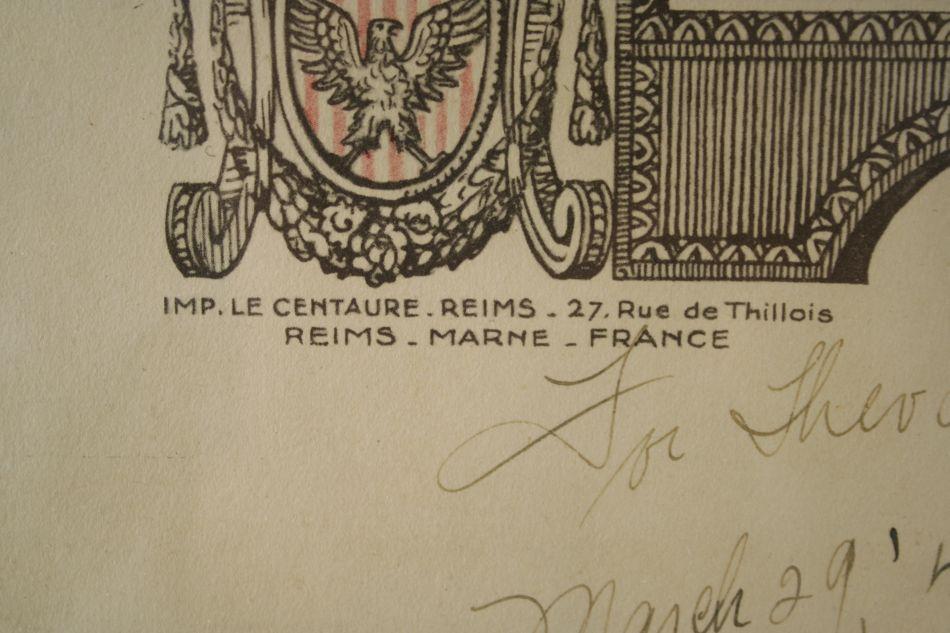 IMP. LE CENTAURE - REIMS - 27, Rue de Thillois
REIMS - MARNE - FRANCE
For
March 29,